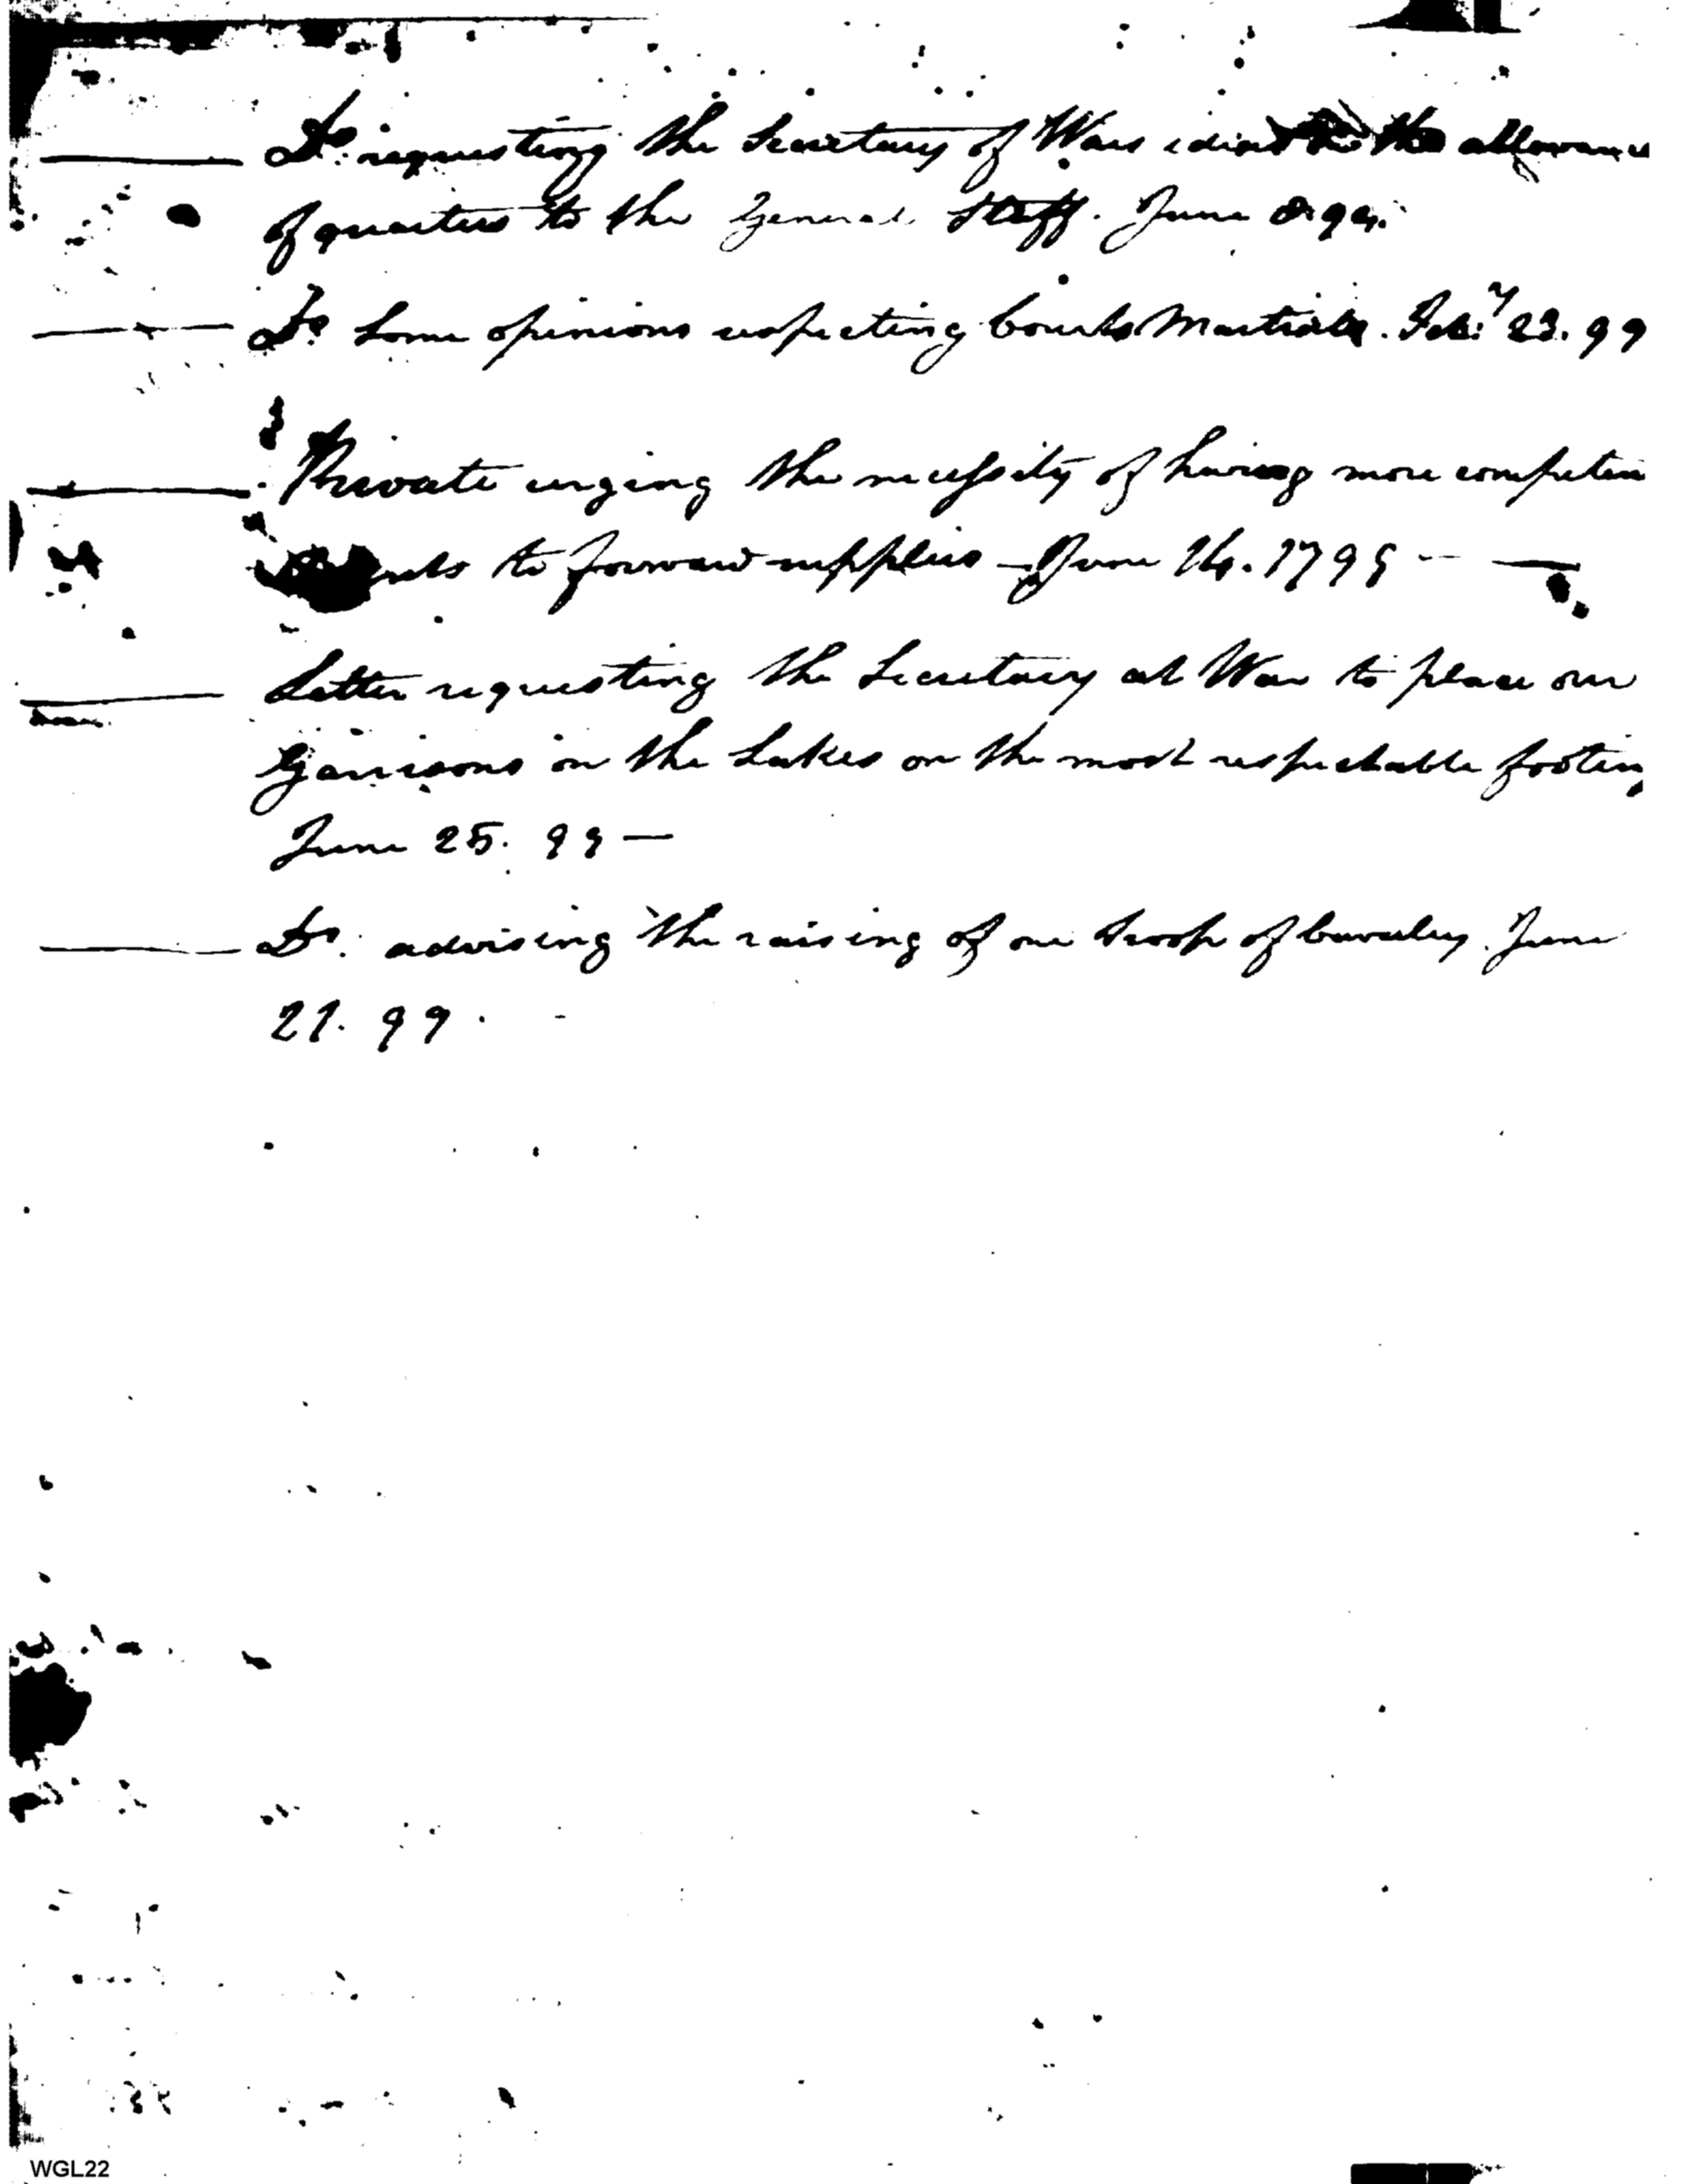 Do. requesting the Secretary of War's allowance
of quarters to the General Staff. June 99.
Do Some opinions respecting Courts Martials. Feby 23. 99
Private urging the necessity of having more competen
to forward supplies - June 14. 1799 - —
Letter requesting the Secretary at War to place our
Garrisons on the Lakes on the most respectable footing
June 25. 99 —
Do. advising the raising of one troop of Cavalry. June
21. 99. -
WGL22